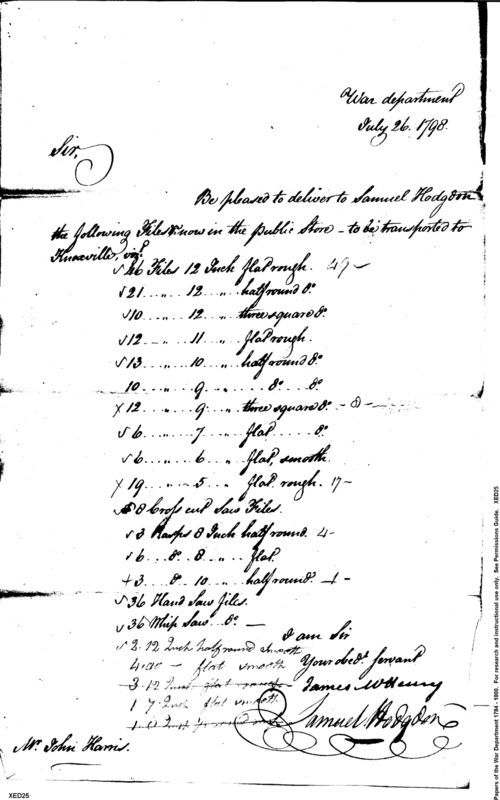 War department
July 26. 1798.
Sir,
Be pleased to deliver to Samuel Hodgdon
the following Files &c now in the public Store - to be transported to
Knoxville, vizt.
√ 46 Files 12 Inch flat rough. 49 -
√ 21 ... " ... 12 ... " half round do.
√ 10 ... " ... 12 ... " three square do.
√ 12 ... " ... 11 ... " flat rough.
√ 13 ... " ... 10 ... " half round do.
10 ... " ... 9 ... " ... do. ... do.
X 12 ... " ... 9 ... " three square do. - 8 -
√ 6 ... " ... 7 ... " flat ... do.
√ 6 ... " ... 6 ... " flat, smooth.
X 19 ... " ... 5 ... " flat rough. 17 -
8 Cross cut Saw Files.
√ 3 Rasps 8 Inch half round. 4 -
√ 6 .. do. 8 .. " .. flat
+ 3 ... do - 10 ... " .. half round. - 1 -
√ 36 Hand Saw files.
√ 36 Whip Saw .. do. -
I am Sir
√ 2. 12 Inch half round smooth
Your obedt. servant
4 do - flat smooth
James McHenry
3. 12 Inch flat rough
1 7 Inch flat smooth
Samuel Hodgdon
Mr. John Harris.
XED25
Papers of the War Department 1784 - 1800. For research and instructional use only. See Permissions Guide. XED25